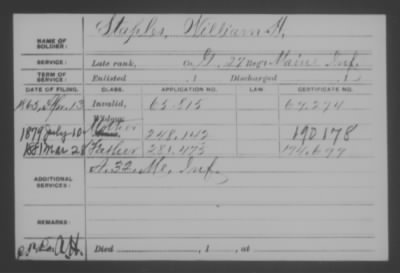 Staples, William H.
NAME OF
SOLDIER:
SERVICE: Late rank, Co. G, 27 Regt Maine Inf.
TERM OF
SERVICE: Enlisted , 1 Discharged , 1
DATE OF FILING. CLASS. APPLICATION NO. LAW. CERTIFICATE NO.
1865, Apr. 13 Invalid, 65.815 67.274
Widow,
1879 July 10 Mother 248.142 190178
1881 Mar 28 Father 281.473 174.677
ADDITIONAL
SERVICES:
A. 32. Me. Inf.
REMARKS:
Died , 1 , at